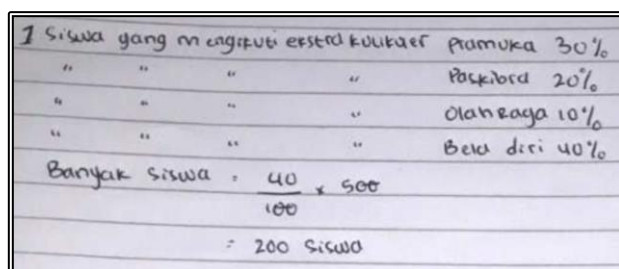 1 Siswa yang mengikuti ekstra kulikuler Pramuka 30%
" " " " Paskibra 20%
" " " " Olah Raga 10%
" " " " Bela diri 40%
Banyak siswa : 40/100 x 500
= 200 Siswa